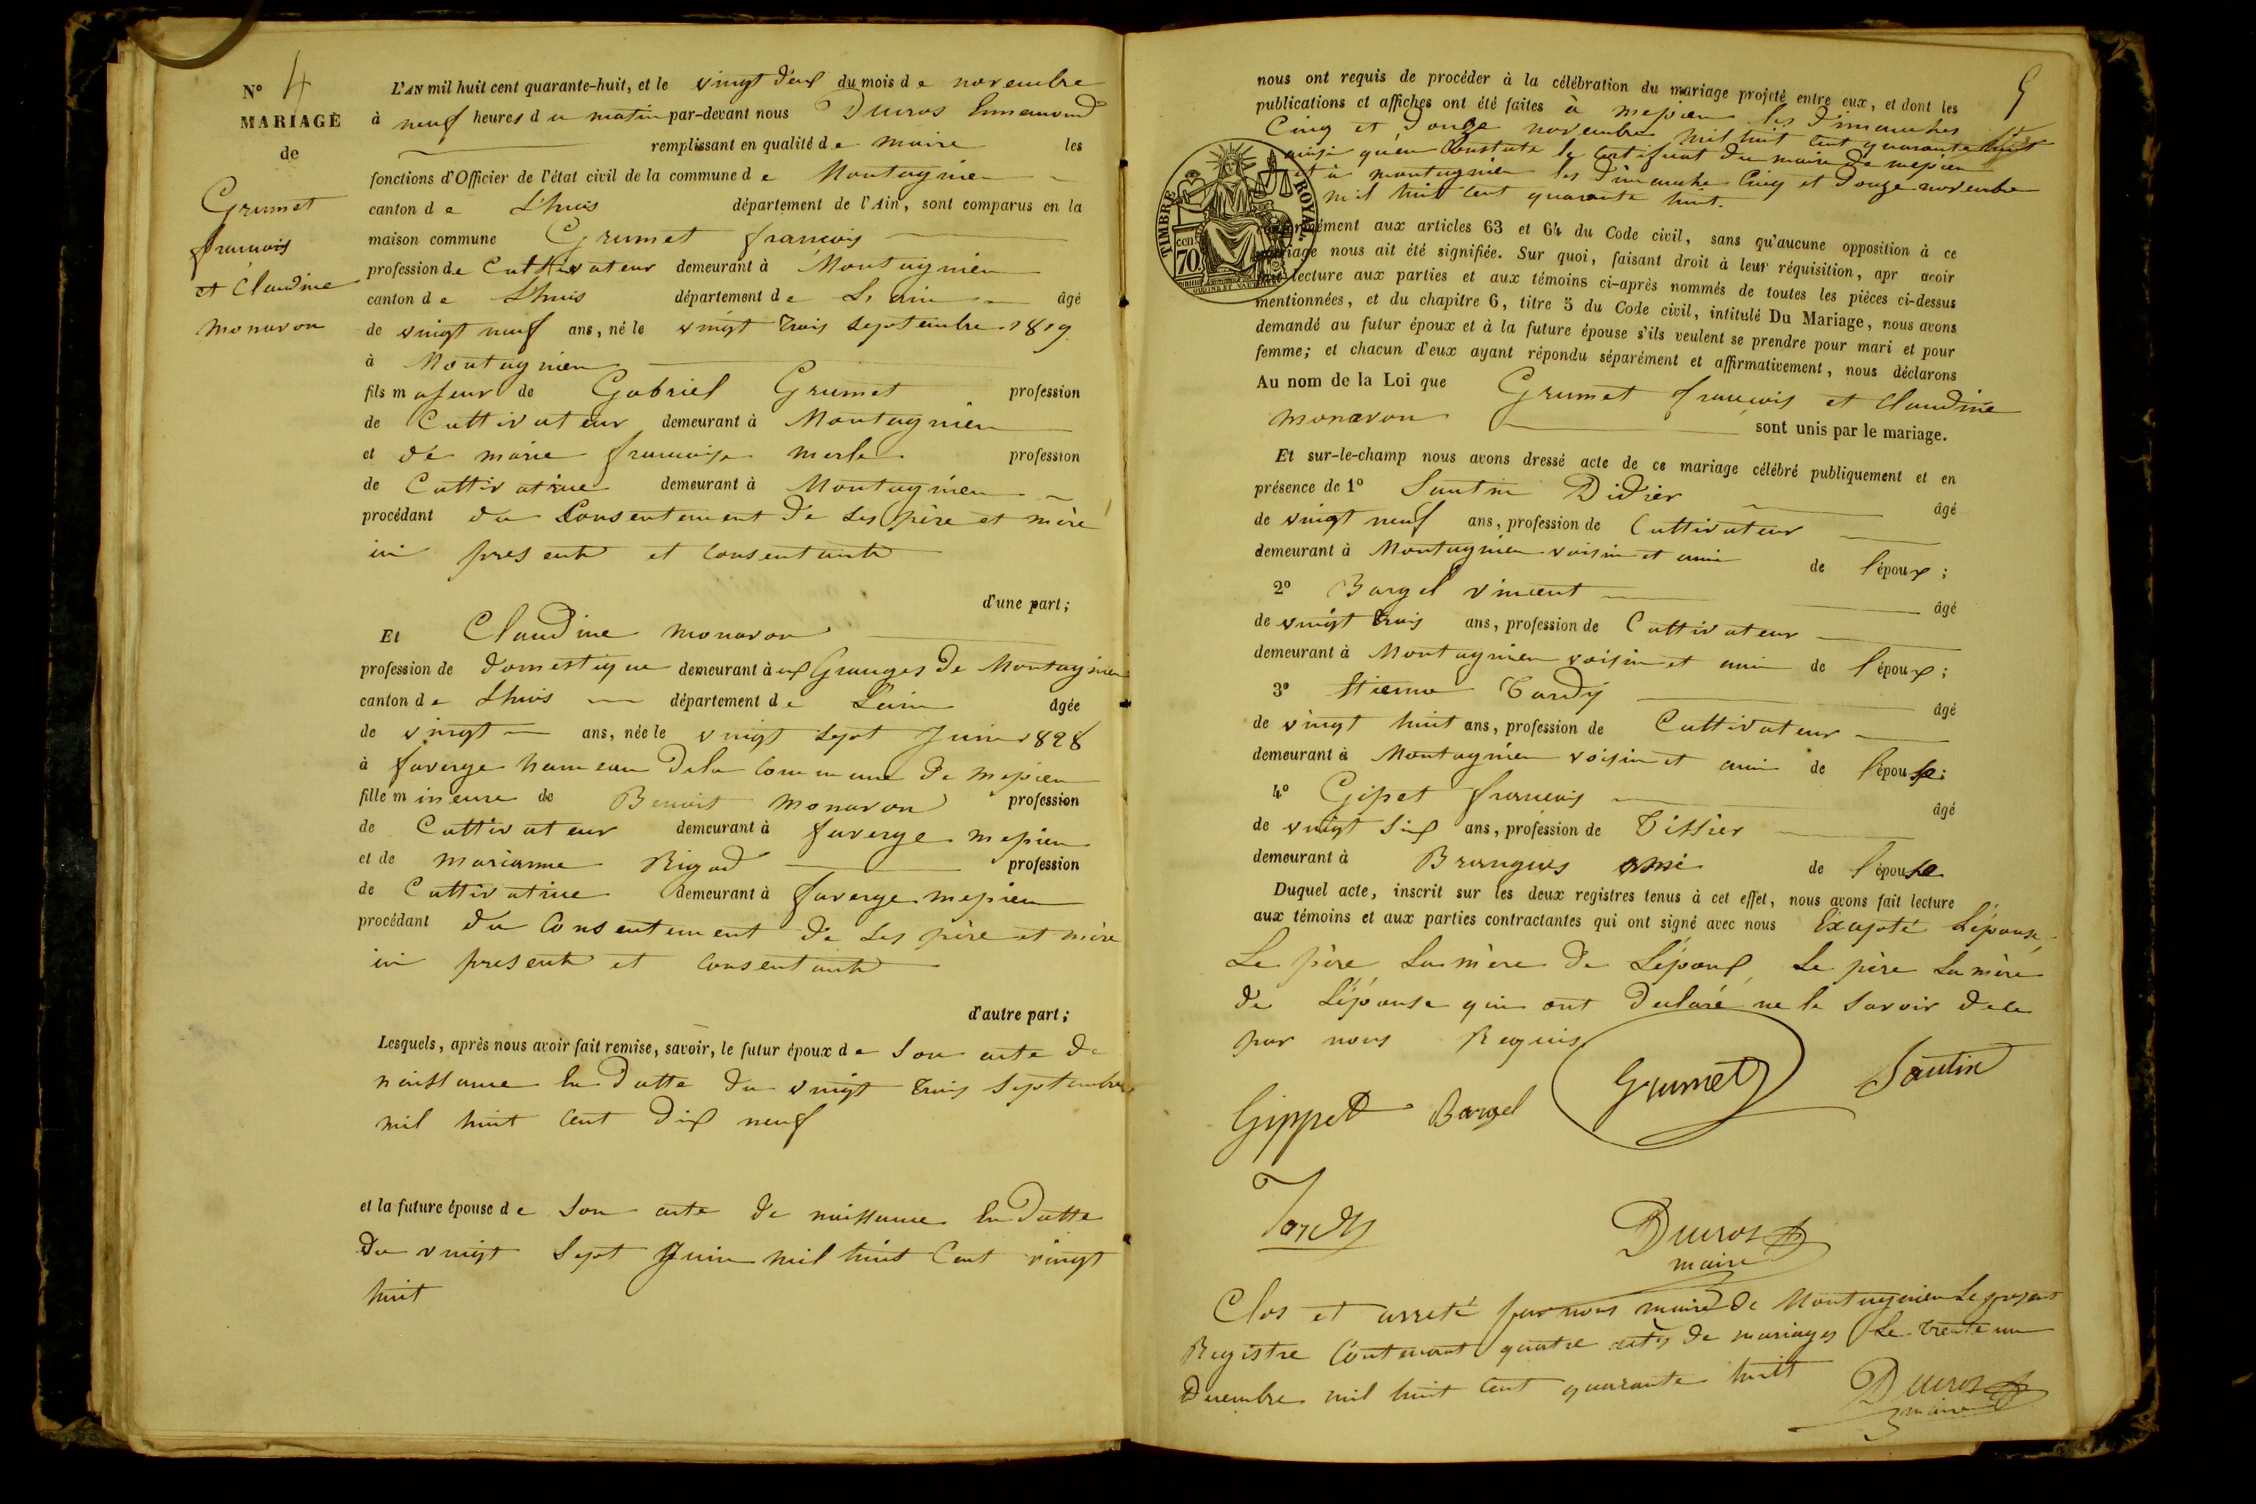 N° 4
MARIAGE
de
Grumet
francois
et Claudine
monavon
L'AN mil huit cent quarante-huit, et le vingt deux du mois de novembre
à neuf heures du matin par-devant nous Ducros Ennemond
remplissant en qualité de maire les
fonctions d'Officier de l'état civil de la commune de Montagnieu
canton de Lhuis département de l'Ain, sont comparus en la
maison commune Grumet francois
profession de Cultivateur demeurant à Montagnieu
canton de Lhuis département de L'ain âgé
de vingt neuf ans, né le vingt trois septembre 1819
à Montagnieu
fils majeur de Gabriel Grumet profession
de Cultivateur demeurant à Montagnieu
et de marie francoise merle profession
de Cultivatrice demeurant à Montagnieu
procédant du Consentement de ses père et mère
ici present et consentants
d'une part;
Et Claudine monavon
profession de domestique demeurant à aux Granges de Montagnieu
canton de Lhuis département de L'ain âgée
de vingt ans, née le vingt sept Juin 1828
à faverge hameau de la Commune de mepieu
fille mineure de Benoit monavon profession
de Cultivateur demeurant à faverge mepieu
et de marianne Rigod profession
de Cultivatrice demeurant à faverge mepieu
procédant du Consentement de ses père et mère
ici present et consentants
d'autre part;
Lesquels, après nous avoir fait remise, savoir, le futur époux de son acte de
naissance En datte du vingt trois septembre
mil huit cent dix neuf
et la future épouse de son acte de naissance En datte
du vingt sept Juin mil huit Cent vingt
huit
5
nous ont requis de procéder à la célébration du mariage projeté entre eux, et dont les
publications et affiches ont été faites à mepieu les dimanches
Cinq et douze novembre mil huit cent quarante huit
ainsi qu'en Constate le certificat du maire de mepieu
et à montagnieu les dimanche Cinq et douze novembre
mil huit cent quarante huit.
TIMBRE ROYAL
cen 70.
conformément aux articles 63 et 64 du Code civil, sans qu'aucune opposition à ce
mariage nous ait été signifiée. Sur quoi, faisant droit à leur réquisition, apr avoir
fait lecture aux parties et aux témoins ci-après nommés de toutes les pièces ci-dessus
mentionnées, et du chapitre 6, titre 5 du Code civil, intitulé Du Mariage, nous avons
demandé au futur époux et à la future épouse s'ils veulent se prendre pour mari et pour
femme; et chacun d'eux ayant répondu séparément et affirmativement, nous déclarons
Au nom de la Loi que Grumet francois et Claudine
monavon sont unis par le mariage.
Et sur-le-champ nous avons dressé acte de ce mariage célébré publiquement et en
présence de 1° Sautin Didier âgé
de vingt neuf ans, profession de Cultivateur
demeurant à Montagnieu voisin et ami de l'époux;
2° Bargel vincent âgé
de vingt trois ans, profession de Cultivateur
demeurant à Montagnieu voisin et ami de l'époux;
3° Etienne Tardy âgé
de vingt huit ans, profession de Cultivateur
demeurant à Montagnieu voisin et ami de l'épouse;
4° Gipet francois âgé
de vingt six ans, profession de Tissier
demeurant à Brangues ami de l'épouse
Duquel acte, inscrit sur les deux registres tenus à cet effet, nous avons fait lecture
aux témoins et aux parties contractantes qui ont signé avec nous Exapté L'épouse,
Le père La mère de L'époux, Le père La mère
de L'épouse qui ont declaré ne le savoir de ce
par nous Requis
Grumet Sautin
Gippet Bargel
Tardy
Ducros
maire
Clos et arreté par nous maire de Montagnieu Le present
Registre Contenant quatre actes de mariages Le trente un
Decembre mil huit cent quarante huit
Ducros
maire